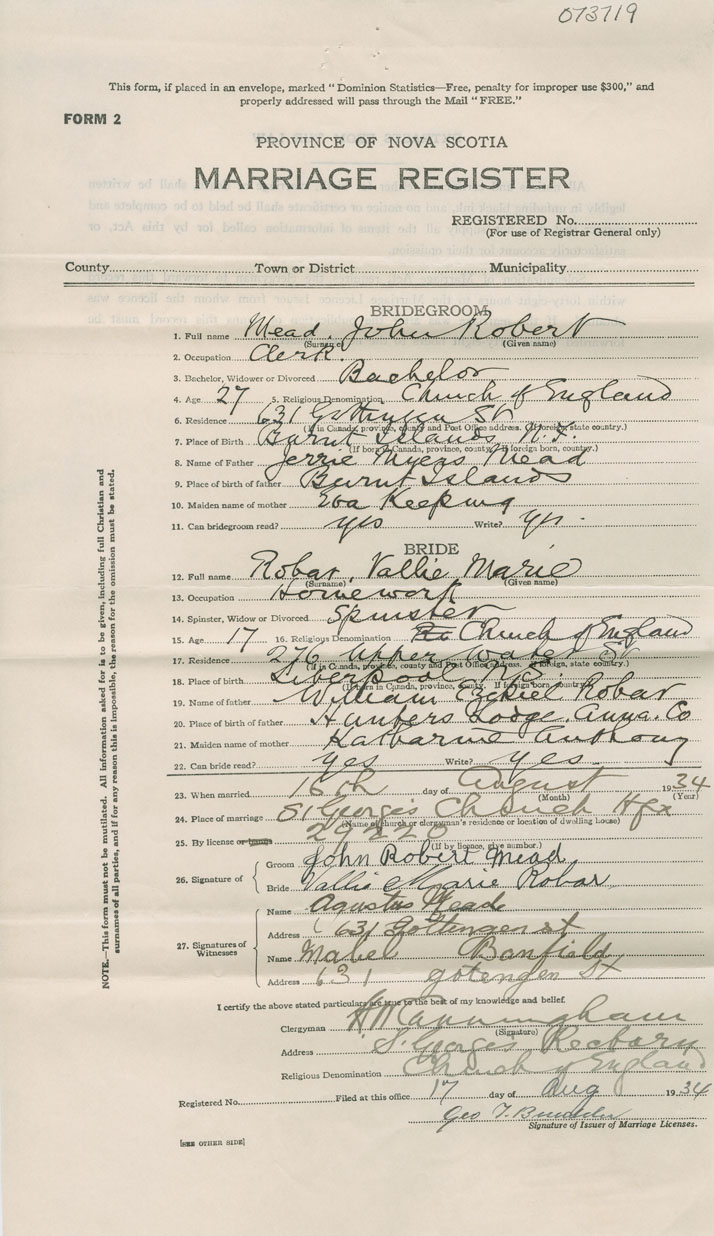 073719
This form, if placed in an envelope, marked "Dominion Statistics—Free, penalty for improper use $300," and
properly addressed will pass through the Mail "FREE."
FORM 2
PROVINCE OF NOVA SCOTIA
MARRIAGE REGISTER
REGISTERED No.
(For use of Registrar General only)
County Town or District Municipality
BRIDEGROOM
1. Full name Mead, John Robert
(Surname) (Given name)
2. Occupation Clerk.
3. Bachelor, Widower or Divorced Bachelor
4. Age 27 5. Religious Denomination Church of England
6. Residence 631 Gottingen St
(If in Canada, province, county and Post Office address. If foreign, state country.)
7. Place of Birth Burnt Islands, N.F.
(If born in Canada, province, county. If foreign born, country.)
8. Name of Father Jerrie Myers Mead
9. Place of birth of father Burnt Islands
10. Maiden name of mother Eva Keeping
11. Can bridegroom read? yes Write? yes.
BRIDE
12. Full name Robar, Vallie Marie
(Surname) (Given name)
13. Occupation Homework
14. Spinster, Widow or Divorced Spinster
15. Age 17 16. Religious Denomination Church of England
17. Residence 276 Upper Water St
(If in Canada, province, county and Post Office address. If foreign, state country.)
18. Place of birth Liverpool N.S.
(If born in Canada, province, county. If foreign born, country.)
19. Name of father William Robar
20. Place of birth of father Lodge. Anna. Co
21. Maiden name of mother Katharine Anthony
22. Can bride read? yes Write? yes.
23. When married 16th day of August 1934
(Month) (Year)
24. Place of marriage St Georges Church Hfx
(Name of church or clergyman's residence or location of dwelling house)
25. By license or banns 29220
(If by licence, give number.)
26. Signature of
Groom John Robert Mead
Bride Vallie Marie Robar
27. Signatures of Witnesses
Name Agustus Meade
Address 631 Gottengen st
Name Mabel Banfield
Address 631 gotengen St
I certify the above stated particulars are true to the best of my knowledge and belief.
Clergyman H
(Signature)
Address St Georges Rectory
Religious Denomination Church of England
Registered No. Filed at this office 17 day of Aug 1934
Geo T.
Signature of Issuer of Marriage Licenses.
[SEE OTHER SIDE]
NOTE.—This form must not be mutilated. All information asked for is to be given, including full Christian and
surnames of all parties, and if for any reason this is impossible, the reason for the omission must be stated.